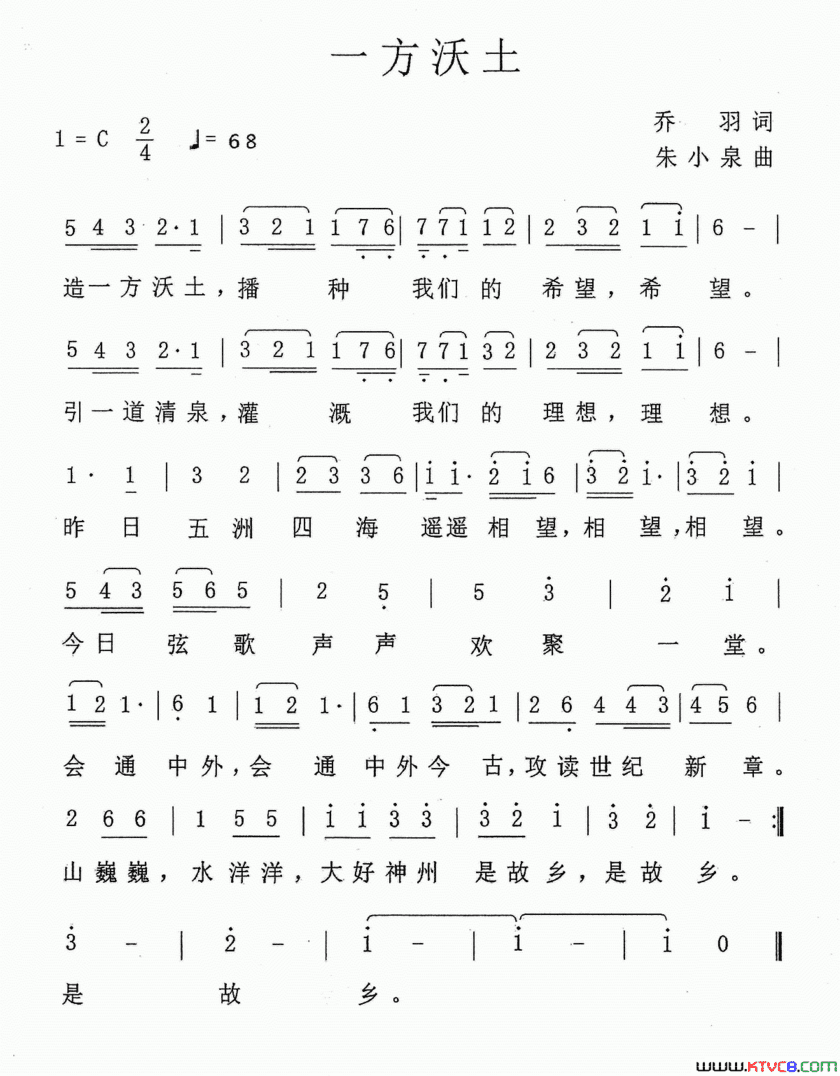 一方沃土
乔 羽词
1=C 2/4 ♩=68
朱小泉曲
5 4 3 2· 1 | 3 2 1 1 7 6 | 7 7 1 1 2 | 2 3 2 1 i | 6 - |
造一方沃土，播 种 我们的希望，希 望。
5 4 3 2· 1 | 3 2 1 1 7 6 | 7 7 1 3 2 | 2 3 2 1 i | 6 - |
引一道清泉，灌 溉 我们的理想，理 想。
1· 1 | 3 2 | 2 3 3 6 | i i· 2 i 6 | 3 2 i· | 3 2 i |
昨日五洲四海遥遥相望，相望，相望。
5 4 3 5 6 5 | 2 5 | 5 3 | 2 i |
今日弦歌声声欢聚一堂。
1 2 1· | 6 1 | 1 2 1· | 6 1 3 2 1 | 2 6 4 4 3 | 4 5 6 |
会通中外，会通中外今古，攻读世纪新章。
2 6 6 | 1 5 5 | i i 3 3 | 3 2 i | 3 2 | i - :‖
山巍巍，水洋洋，大好神州是故乡，是故乡。
3 - | 2 - | i - | i - | i 0 ‖
是 故 乡。
www.KTVC8.com